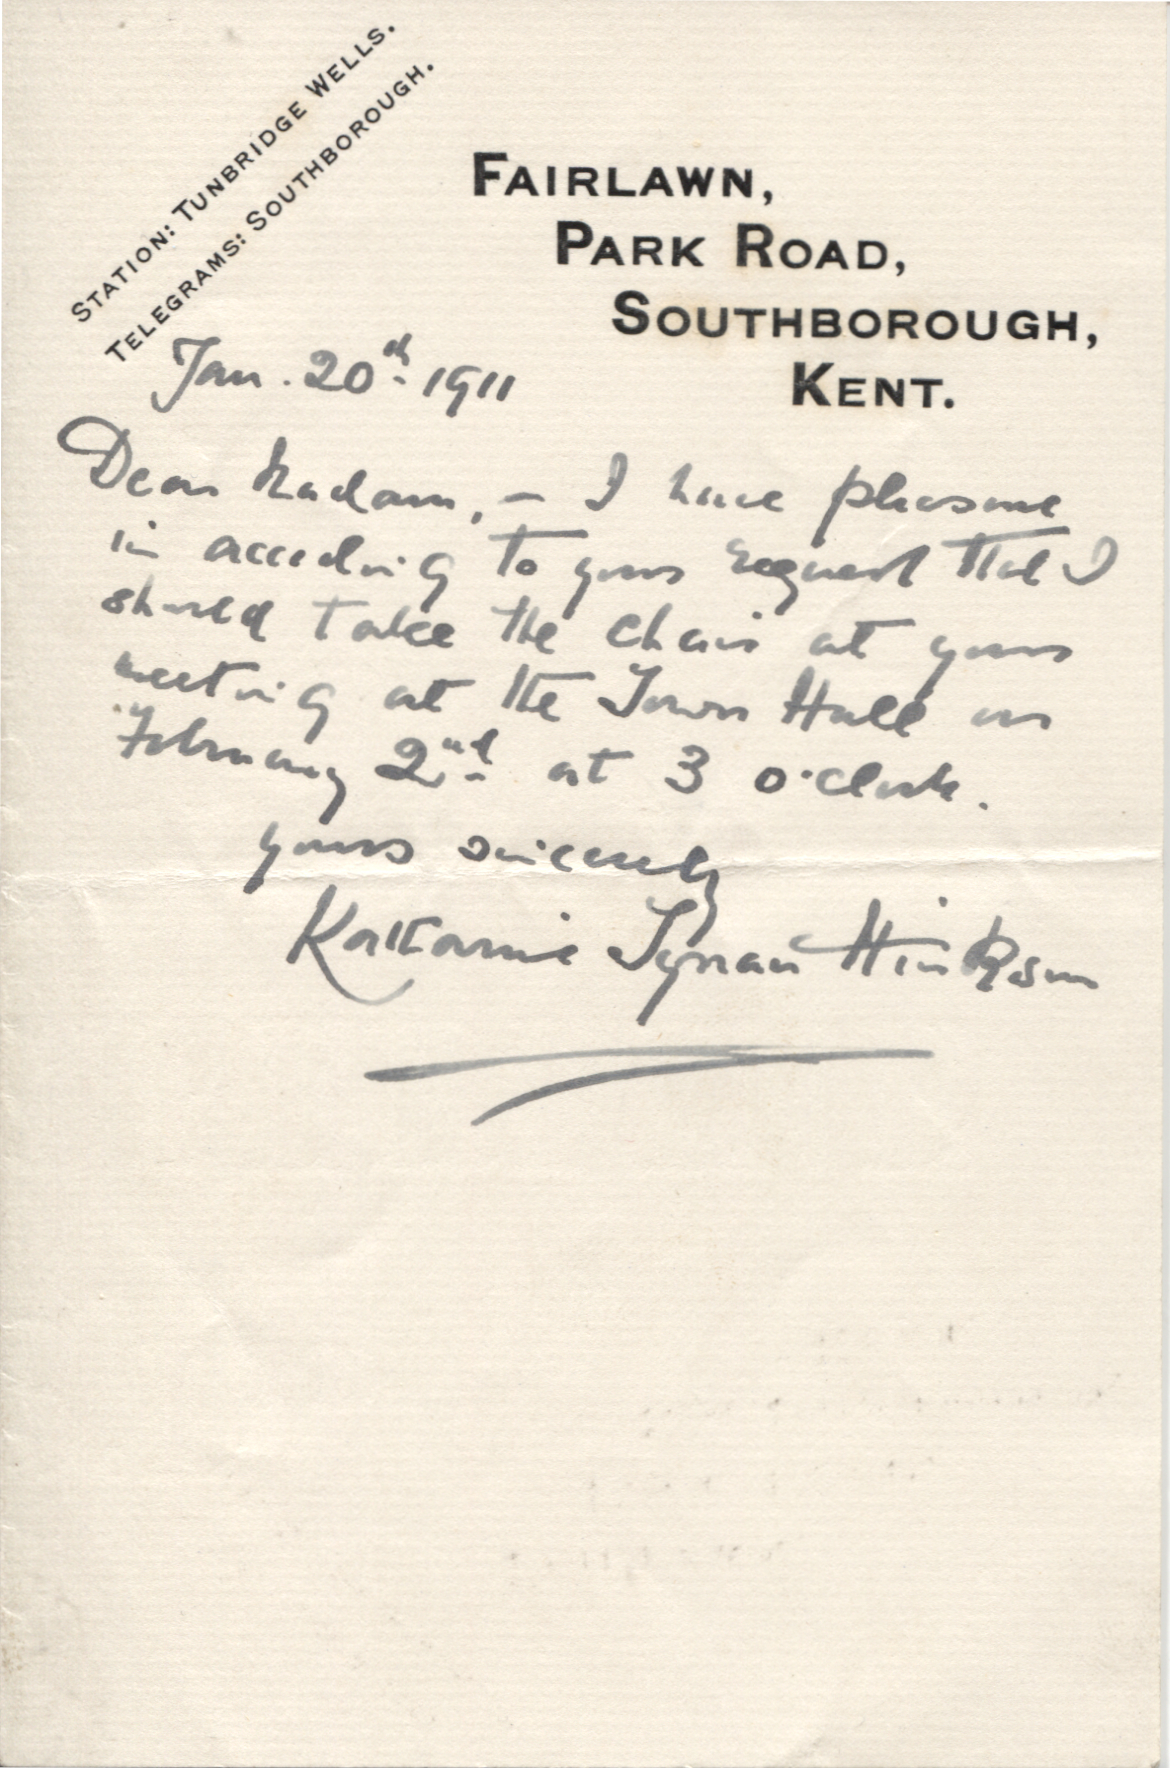 STATION: TUNBRIDGE WELLS.
TELEGRAMS: SOUTHBOROUGH.
FAIRLAWN,
PARK ROAD,
SOUTHBOROUGH,
KENT.
Jan. 20th. 1911
Dear Madam, – I have pleasure
in acceding to your request that I
should take the chair at your
meeting at the Town Hall on
February 2nd. at 3 o'clock.
Yours sincerely
Katharine Tynan Hinkson